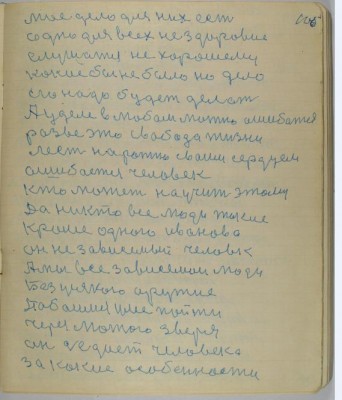 мое дело для них ест
одно для всех не здоровие
слушатя не хорошему
какое бы не было но дело
его надо будет делат
А уделе в любом можно ошибатся
разве это свобода жизни
лест на ротно своим сердцем
ошибается человек
кто может научит этому
Да никто все люди такие
Кроме одного иванова
он не зависемый человек
А мы все зависемаи люди
Без усякого аружие
пойти
через лютого зверя
он седает человека
за какие особенности